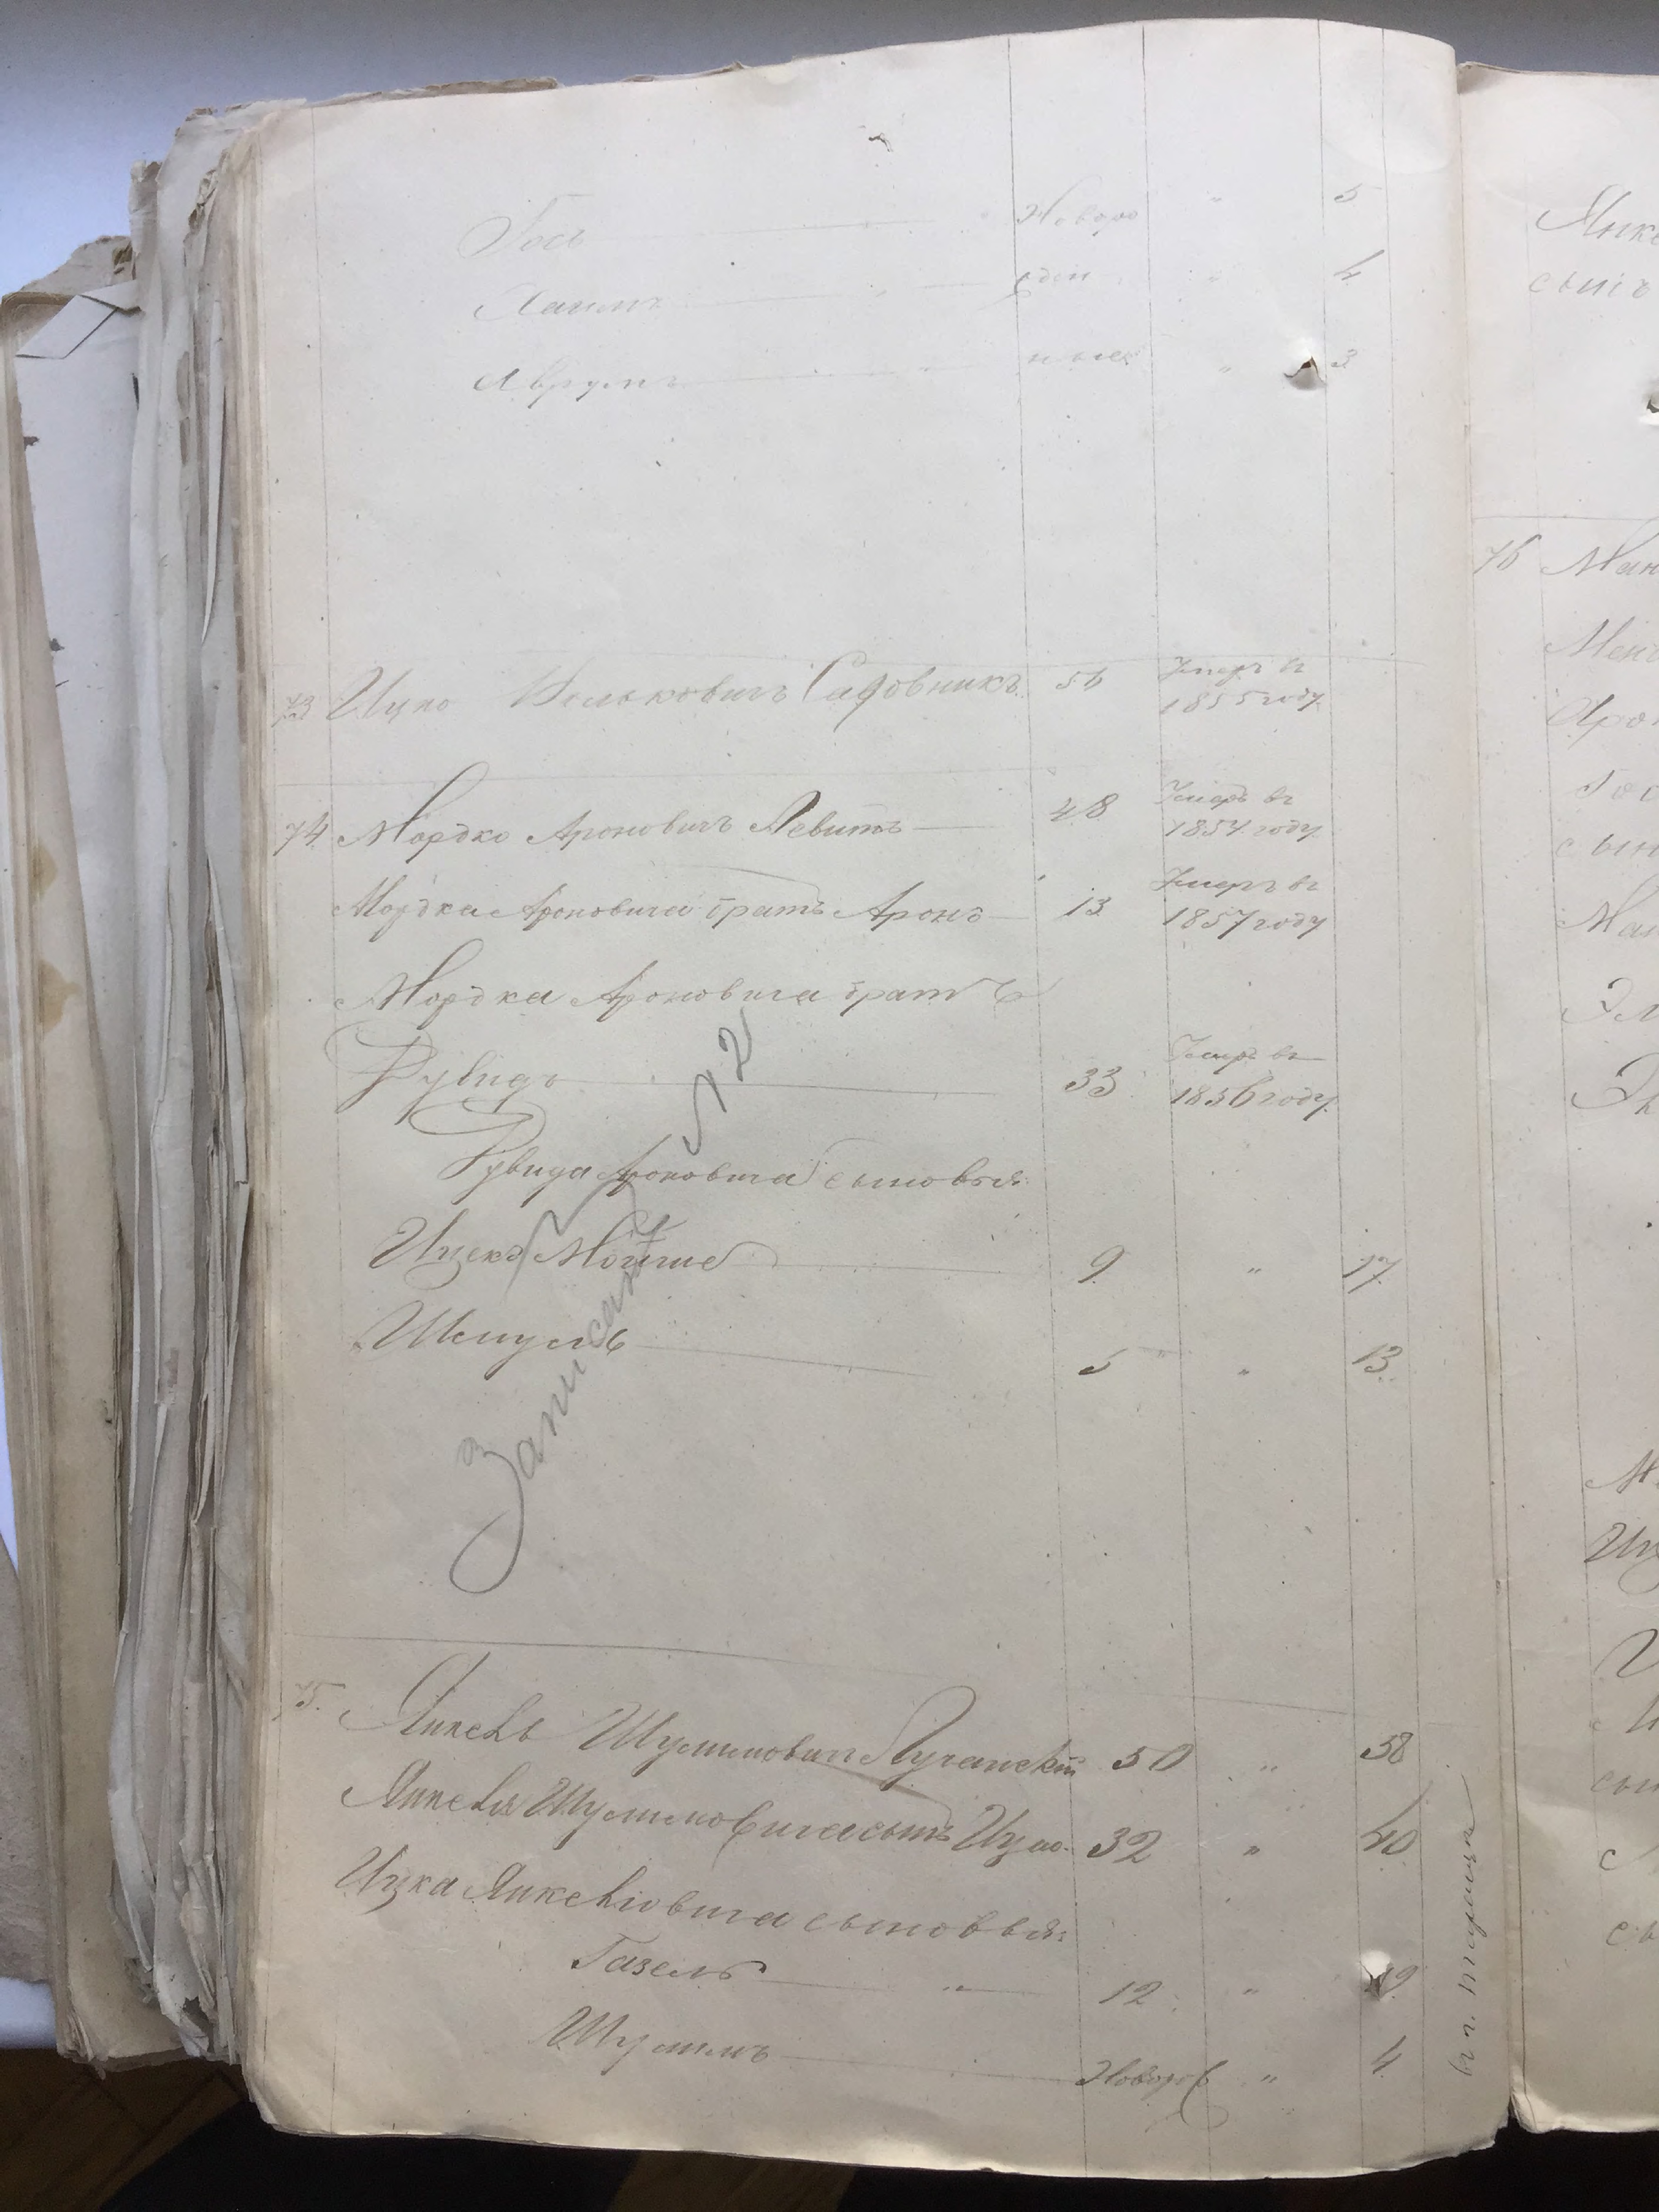 Гось Новоро " 5
Хаимъ " жден " 4
Аврумъ " ныех " 3
73 Ицко Волькович Садовникъ 56 Умеръ въ
1855 году.
74 Мордко Аронович Левитъ 48 Умеръ въ
1854 году
Мордка Ароновича братъ Аронъ 13 Умеръ въ
1857 году
Мордка Ароновича братъ
Рувидъ 33 Умеръ въ
1856 году.
Рувида Ароновича сыновья:
Ицекъ Мойше 9 " 17.
Шмуль 5 " 13.
Записан
№ 12
75. Янкель Шулимович Луганскій 50 " 58
Янкеля Шулимовича сынъ Ицко. 32 " 40
Ицка Янкелiовича сыновья:
Газель " 12 " 19.
Шулимъ Новоро " 4.
Янке
сынъ
76 Ман
Арон
Гос
сын